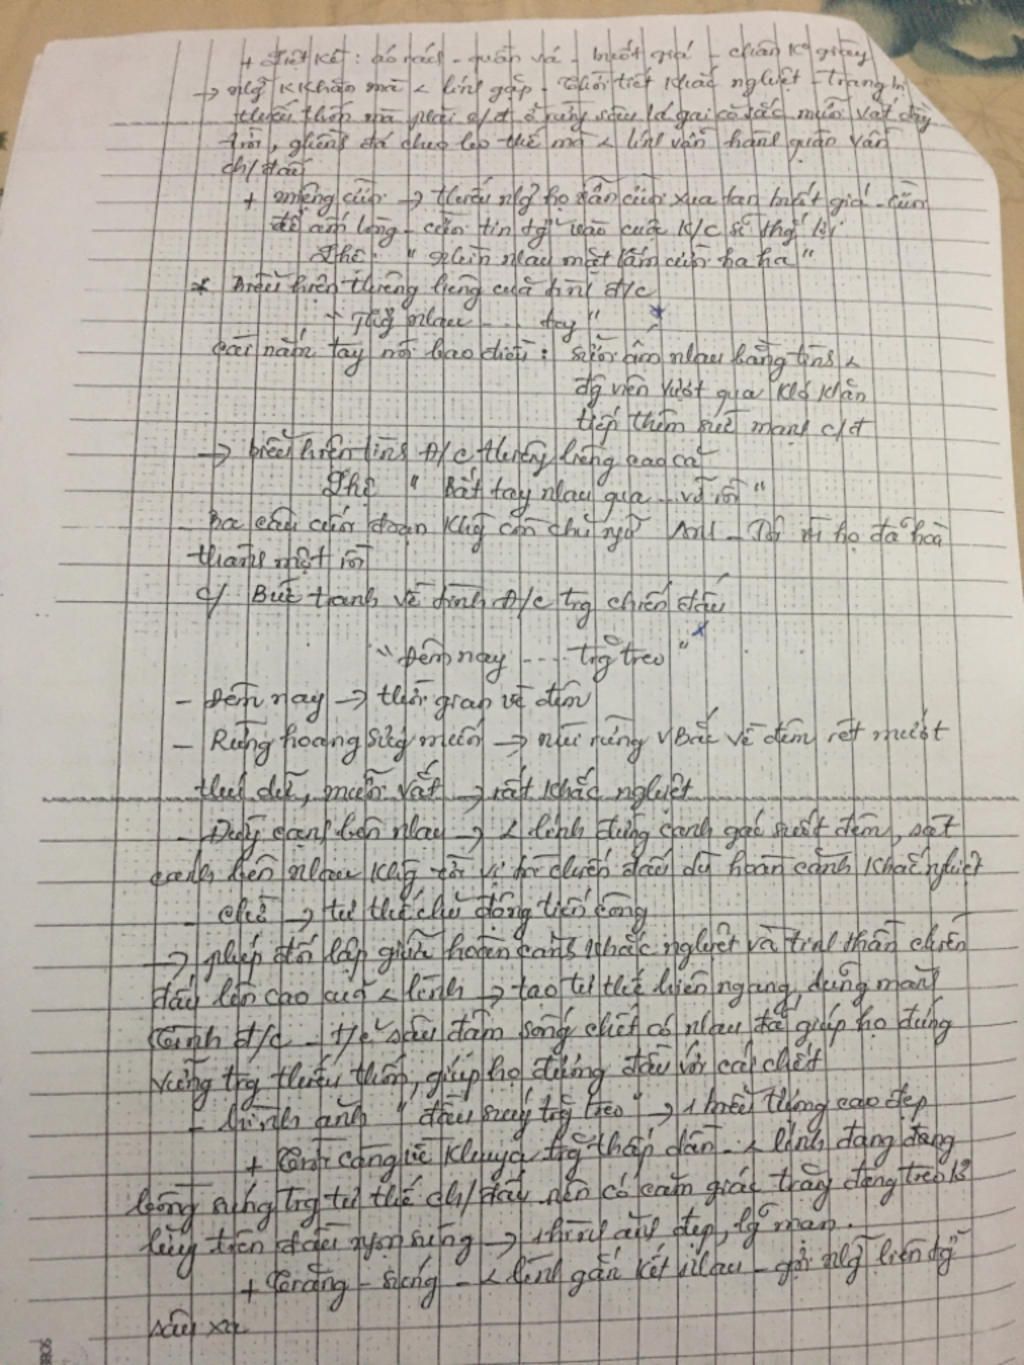 + Liệt kê: áo rách - quần vá - buốt giá - chân K° giày
→ nhg~ K Khăn mà < lính gặp - thời tiết khắc nghiệt - trang bị
thiếu thốn mà phải ở rừng sâu lá gai cò sắc muỗi vắt đầy
trời, ghềnh đá cheo leo thế mà < lính vẫn hành quân vẫn
ch/đấu
+ miệng cười → thiếu nhg~ họ vẫn cười xua tan buốt giá
để ấm lòng - còn tin tg vào cuộc K/c sẽ thg lợi
Thơ: " nhìn nhau mặt lấm cười ha ha"
* Biểu hiện thiêng liêng của tình đ/c
"Thg nhau .... tay"
cái nắm tay nói bao điều: sưởi ấm nhau bằng tình <
độ viên vượt qua khó khăn
tiếp thêm sức mạnh c/đ
→ biểu hiện tình đ/c thiêng liêng cao cả
Thơ " Bắt tay nhau qua ... vỡ rồi"
- Ba câu cuối đoạn Khg còn chủ ngữ Anh - Tôi vì họ đã hoà
thành một rồi
c/ Bức tranh về tình đ/c trg chiến đấu
"Đêm nay .... trg treo"
- Đêm nay → thời gian về đêm
- Rừng hoang sương muối → núi rừng VBắc về đêm rét mướt
thú dữ, muỗi vắt → rất khắc nghiệt
- Đứng cạnh bên nhau → < lính đứng canh gác suốt đêm, sát
cạnh bên nhau khg rời vị trí chiến đấu dù hoàn cảnh khắc nghiệt
- chờ → tư thế chủ động tiến công
→ phép đối lập giữa hoàn cảnh khắc nghiệt và tinh thần chiến
đấu lên cao của < lính → tạo tư thế hiên ngang, dũng mãnh
Tình đ/c - t/c sâu đậm sống chết có nhau đã giúp họ đứng
vững trg thiếu thốn, giúp họ đứng đầu với cái chết
- hình ảnh "đầu súng trg treo" → biểu tượng cao đẹp
+ Cảnh càng về khuya trg thấp dần - < lính đang
bồng súng trg tư thế ch/đấu nên có cảm giác trăng đang treo lơ
lửng trên đầu ngọn súng → hình ảnh đẹp, lg mạn.
+ Trăng - súng - < lính gắn kết nhau - gợi nhg~ liên tg~
sâu xa